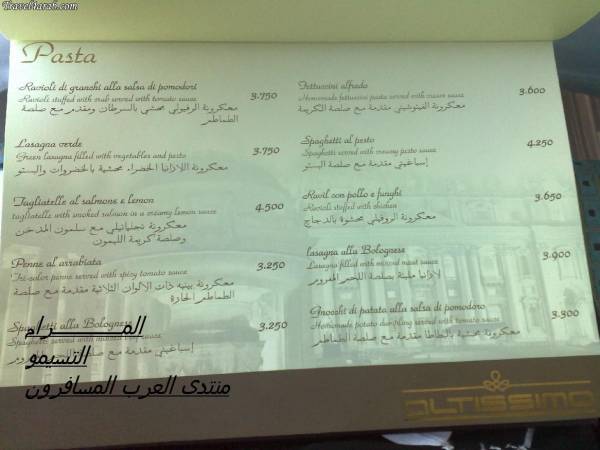 Travel4arab.com
Pasta
Ravioli di granchi alla salsa di pomodori 3.750
Ravioli stuffed with crab served with tomato sauce
معكرونة الرفيولي محشي بالسرطان ومقدم مع صلصة
الطماطم
Lasagna verde 3.750
Green lasagna filled with vegetables and pesto
معكرونة اللازانيا الخضراء محشية بالخضروات والبستو
Tagliatelle al salmone e lemon 4.500
tagliatelle with smoked salmon in a creamy lemon sauce
معكرونة تجلياتيلي مع سلمون المدخن
وصلصة كريمة الليمون
Penne al arrabiata 3.250
Tri-color penne served with spicy tomato sauce
معكرونة بينيه ذات الالوان الثلاثية مقدمة مع صلصة
الطماطم الحارة
Spaghetti alla Bolognese 3.250
Spaghetti served with minced sauce
إسباغيتي مقدمة مع صلصة
Fettuccini alfredo 3.600
Homemade fettuccini pasta served with cream sauce
معكرونة الفيتوشيني مقدمة مع صلصة الكريمة
Spaghetti al pesto 4.250
Spaghetti served with creamy pesto sauce
إسباغيتي مقدمة مع صلصة البستو
Ravil con pollo e funghi 3.650
Ravioli stuffed with chicken
معكرونة الروفيلي محشوة بالدجاج
lasagna alla Bolognese 3.900
Lasagna filled with minced meat sauce
لازانيا مليئة بصلصة اللحم المفروم
Gnocchi di patata alla salsa di pomodoro 3.300
Homemade potato dumpling served with tomato sauce
معكرونة محشية بالبطاطا مقدمة مع صلصة الطماطم
المـــــرام
التسيمو
منتدى العرب المسافرون
ALTISSIMO